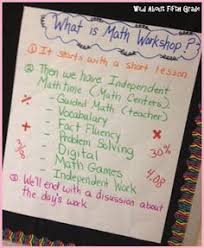 Wild About Fifth Grade
What is Math Workshop?
① It starts with a short lesson
② Then we have Independent
Math time (Math Centers)
- Guided Math (teacher)
- Vocabulary
- Fact Fluency
- Problem Solving
- Digital
- Math Games
- Independent Work
③ We'll end with a discussion about
the day's work
% + 3/8
× 30% 4.08